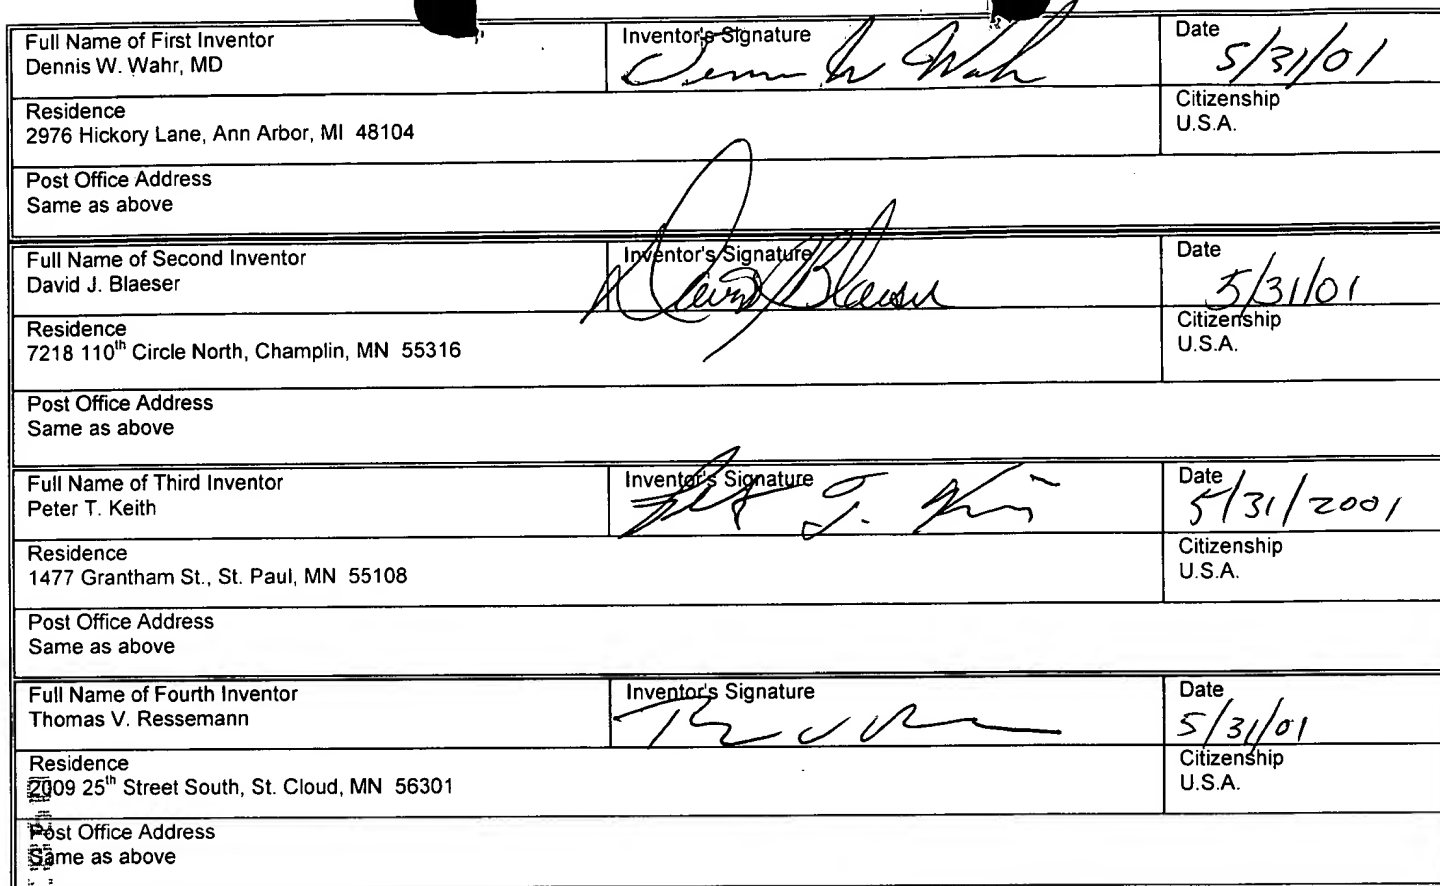 Full Name of First Inventor
Dennis W. Wahr, MD
Inventor's Signature
Dennis W Wahr
Date
5/31/01
Residence
2976 Hickory Lane, Ann Arbor, MI 48104
Citizenship
U.S.A.
Post Office Address
Same as above
Full Name of Second Inventor
David J. Blaeser
Inventor's Signature
David J Blaeser
Date
5/31/01
Residence
7218 110th Circle North, Champlin, MN 55316
Citizenship
U.S.A.
Post Office Address
Same as above
Full Name of Third Inventor
Peter T. Keith
Inventor's Signature
Date
5/31/2001
Residence
1477 Grantham St., St. Paul, MN 55108
Citizenship
U.S.A.
Post Office Address
Same as above
Full Name of Fourth Inventor
Thomas V. Ressemann
Inventor's Signature
Date
5/31/01
Residence
2009 25th Street South, St. Cloud, MN 56301
Citizenship
U.S.A.
Post Office Address
Same as above